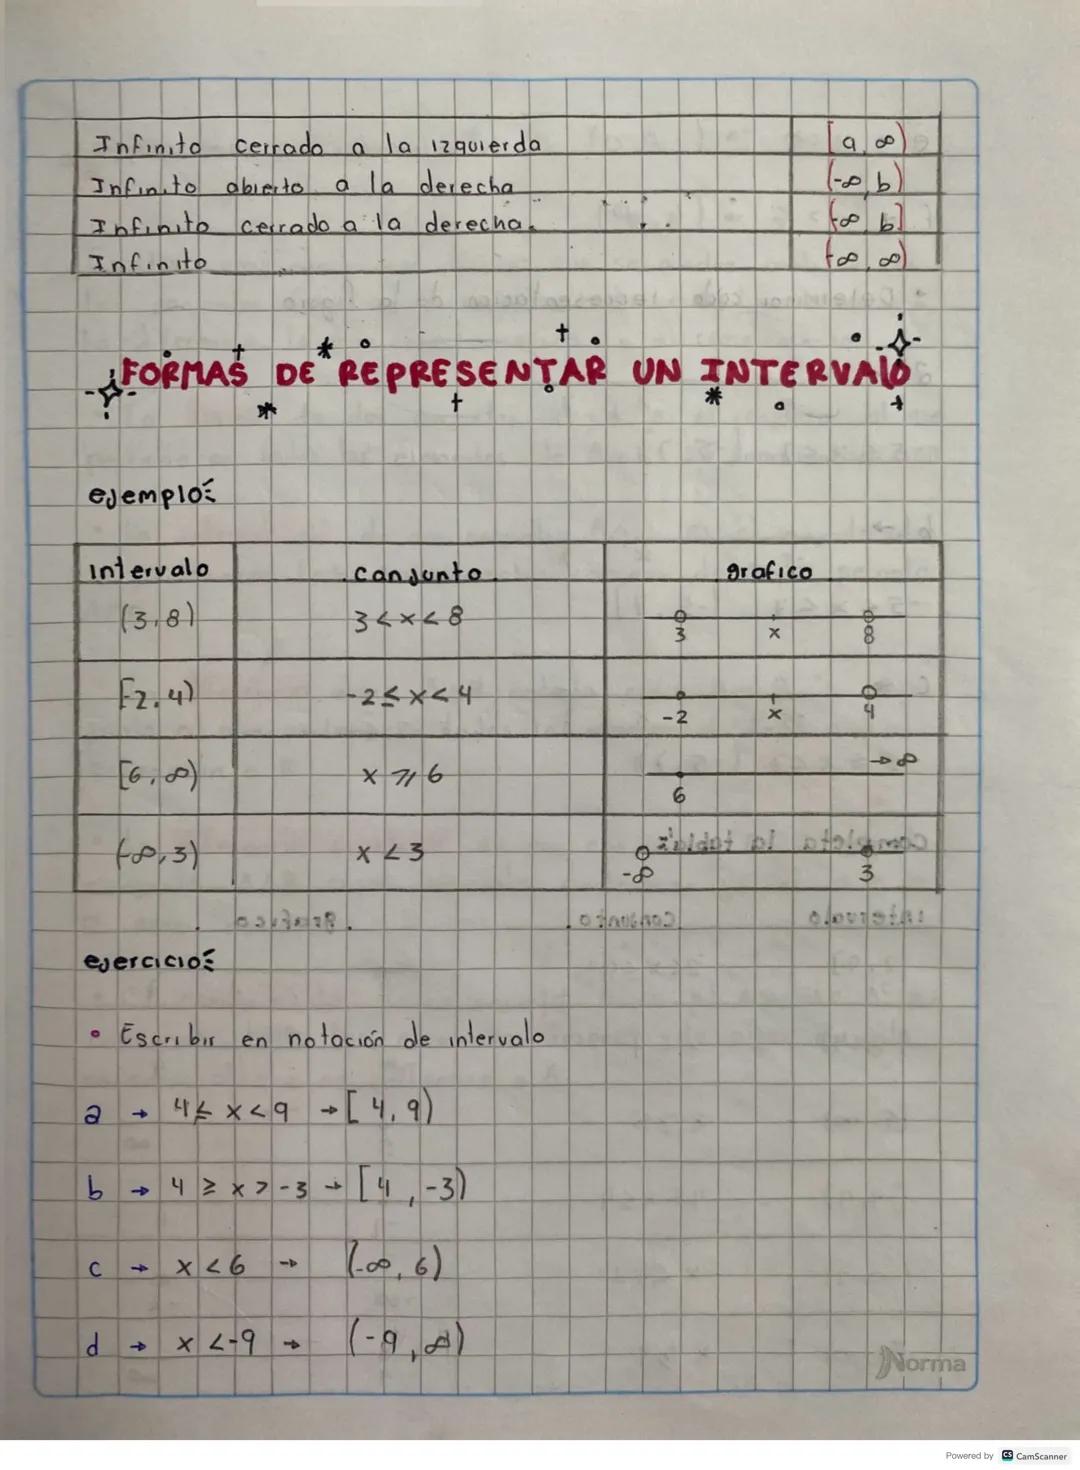 Infinito cerrado a la izquierda [a, ∞)
Infinito abierto a la derecha (-∞, b)
Infinito cerrado a la derecha. (-∞, b]
Infinito (-∞, ∞)
FORMAS DE REPRESENTAR UN INTERVALO
ejemplo:
intervalo conjunto grafico
(3,8) 3<x<8 3 x 8
[-2,4) -2≤x<4 -2 x 4
[6,∞) x ≥ 6 6 → ∞
(-∞,3) x <3 -∞ 3
ejercicio:
• Escribir en notación de intervalo
a → 4≤ x<9 → [4,9)
b → 4 ≥ x > -3 → [4,-3)
c → x <6 → (-∞, 6)
d → x <-9 → (-9,∞)
Norma
Powered by CS CamScanner